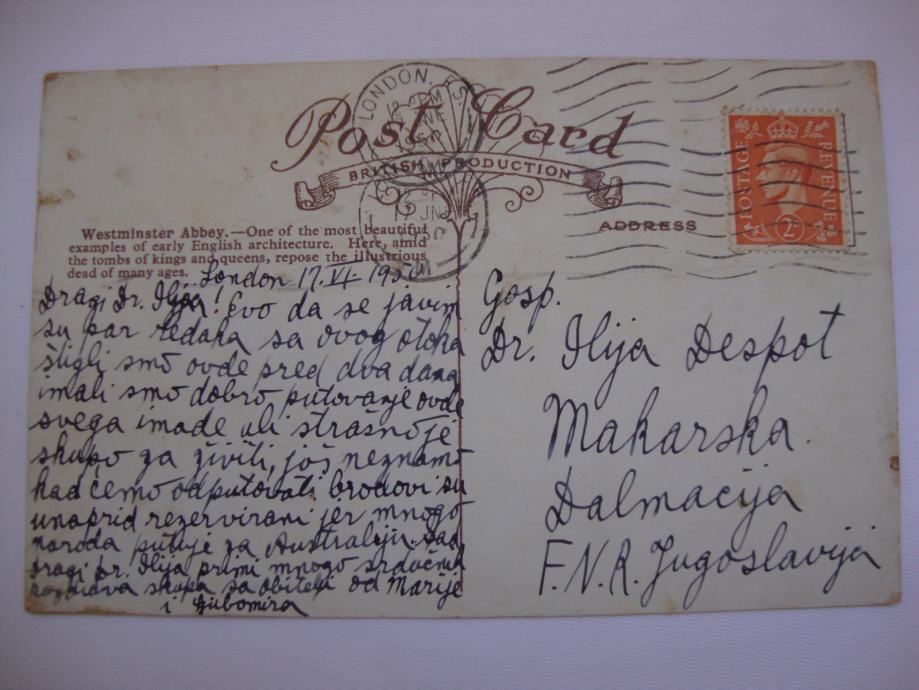 Post Card
BRITISH PRODUCTION
LONDON
JNE
17 JN
POSTAGE
REVENUE
2D
ADDRESS
Westminster Abbey.—One of the most beautiful
examples of early English architecture. Here, amid
the tombs of kings and queens, repose the illustrious
dead of many ages.
London 17. VI. 1950
Dragi Dr. Ilija! Evo da se javim
su par redaka sa ovog otoka
stigli smo ovde pred dva dana
imali smo dobro putovanje ovde
svega imade ali strašno je
skupo za živiti, još neznamo
kad ćemo odputovati brodovi su
unaprid rezervirani jer mnogo
naroda putuje za Australiju. Sad
dragi Dr. Ilija primi mnogo srdačnih
pozdrava skupa sa obitelji od Marije
i Ljubomira
Gosp.
Dr. Ilija Despot
Makarska
Dalmacija
F.N.R. Jugoslavija